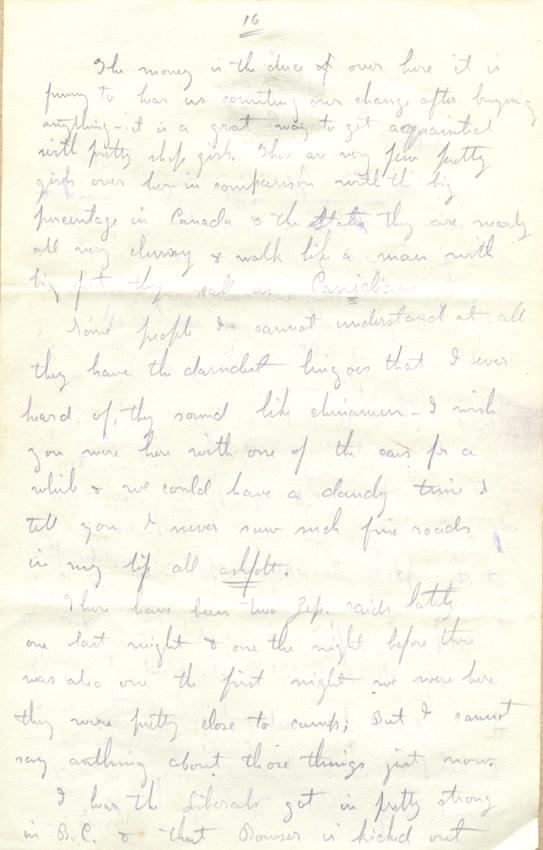 16
The money is the duce & over here it is
funny to hear us counting our change after buying
anything - it is a great way to get acquainted
with pretty shop girls. There are very few pretty
girls over here in comparison with the big
percentage in Canada & the States, they are nearly
all very clumsy & walk like a man with
big feet they call us Canidians
Some people I cannot understand at all
they have the darndest lingoes that I ever
heard of, they sound like chinamen - I wish
you were here with one of the cars for a
while & we could have a dandy time I
tell you I never saw such fine roads
in my life all ashfolt.
There have been two Zep. raids lately
one last night & one the night before there
was also one the first night we were here
they were pretty close to camp; But I cannot
say anthing about those things just now.
I hear the Liberals got in pretty strong
in B.C. & that Bowser is kicked out